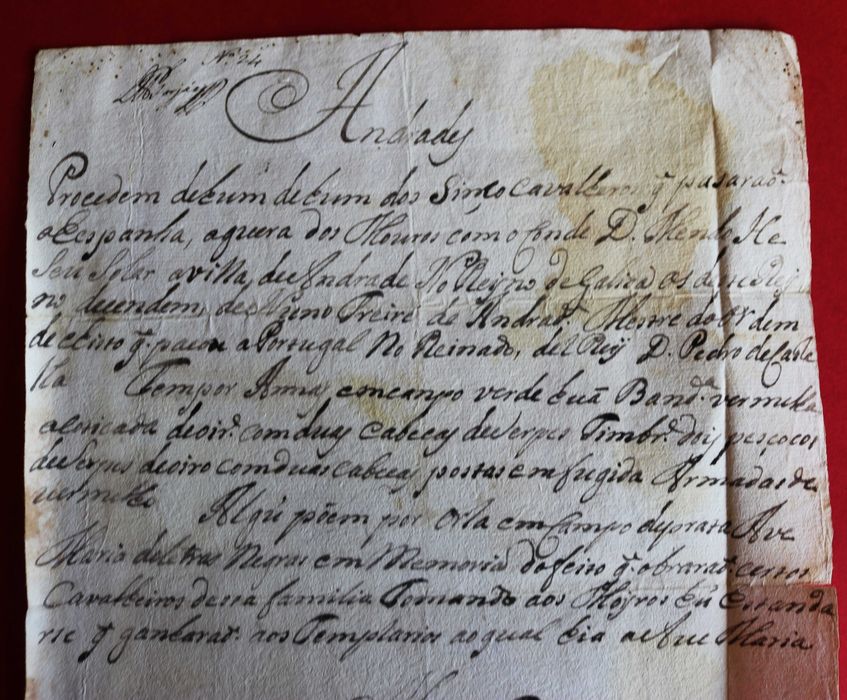 No 24
Andrades
Procedem de hum de hum dos Sinco Cavalleiros q̃ pasaraõ
a Espanha, a guera dos Mouros com o Conde D. Mendo He
Seu Solar a villa, de Andrade No Reyno de Galiza os deste Rej
no decendem, de Nuno Freire de Andrad.ᵉ Mestre da or dem
de christo q̃ pacou a Portugal No Reinado, del Rey D. Pedro de Caste
lla Tem por Armas em campo verde huã Band.ᵃ vermelha
acoticada de oir.º com duas cabecas de Serpes Timbr.ᵉ dois pescocos
de Serpes de oiro com duas cabecas postas em fugida Armadas de
vermelho Algũ põem por orla em Campo de prata Ave
Maria de letras Negras em Memoria do feito q̃ obraraõ certos
Cavalleiros dessa familia Tomando aos Moyros hũ Estanda
rte q̃ ganharaõ aos Templarios ao qual hia a Ave Maria